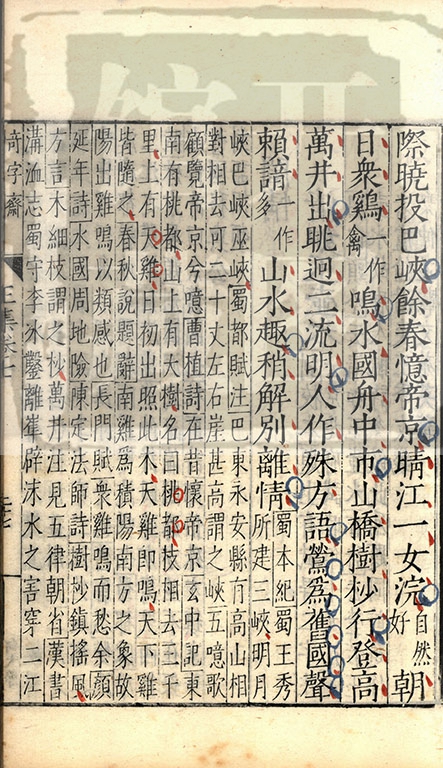 際曉投巴峽餘春憶帝京晴江一女浣自然好朝
日衆鷄一作禽鳴水國舟中市山橋樹杪行登高
萬井出眺迥二流明人作殊方語鶯為舊國聲
賴諳一作多山水趣稍解別離情蜀本紀蜀王秀所建三峽明月
峽巴峽巫峽蜀都賦注巴東永安縣有高山相
對相去可二十丈左右崖甚高謂之峽五噫歌
顧覽帝京兮噫曹植詩在昔懷帝京玄中記東
南有桃都山上有大樹名曰桃都枝相去三千
里上有天雞日初出照此木天雞即鳴天下雞
皆隨之春秋說題辭南雞為積陽南方之象故
陽出雞鳴以類感也長門賦衆雞鳴而愁余顔
延年詩水國周地險陳定法師詩樹杪鎮搖風
方言木細枝謂之杪萬井注見五律朝省漢書
溝洫志蜀守李氷鑿離崔辟沫水之害穿二江
奇字齋